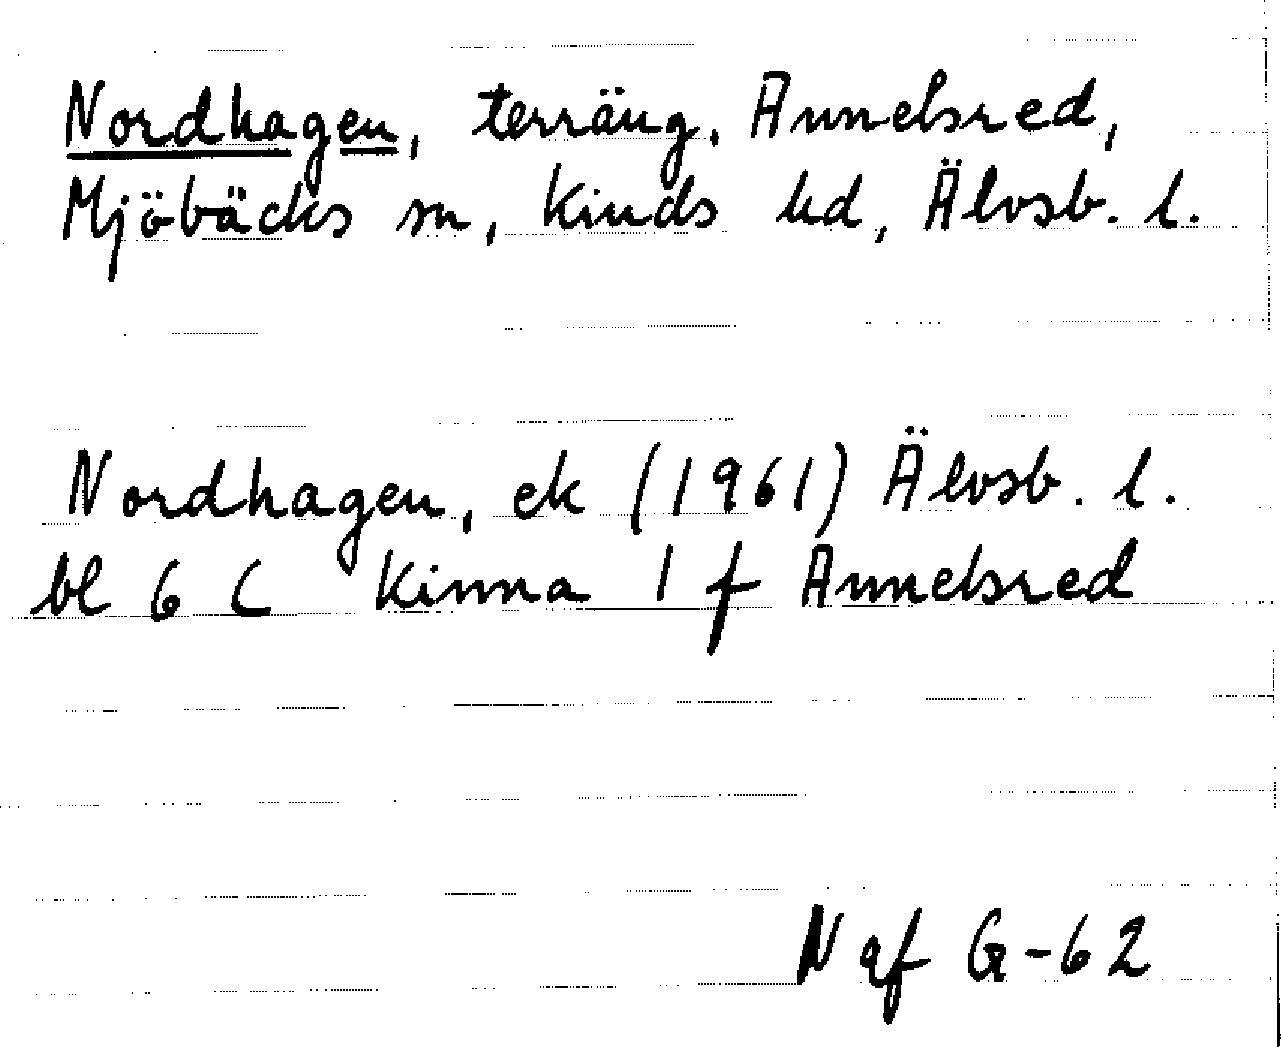 Nordhagen, terräng, Annelsred,
Mjöbäcks sn, Kinds hd, Älvsb. l.
Nordhagen, ek (1961) Älvsb. l.
bl 6 C Kinna 1 f Annelsred
N af G-62